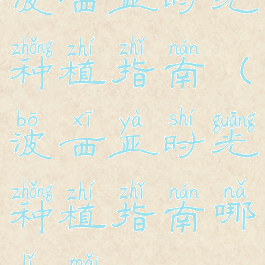 波西亚时光
zhǒng zhí zhǐ nán
种植指南（
bō xī yà shí guāng
波西亚时光
zhǒng zhí zhǐ nán nǎ
种植指南哪
lǐ mǎi